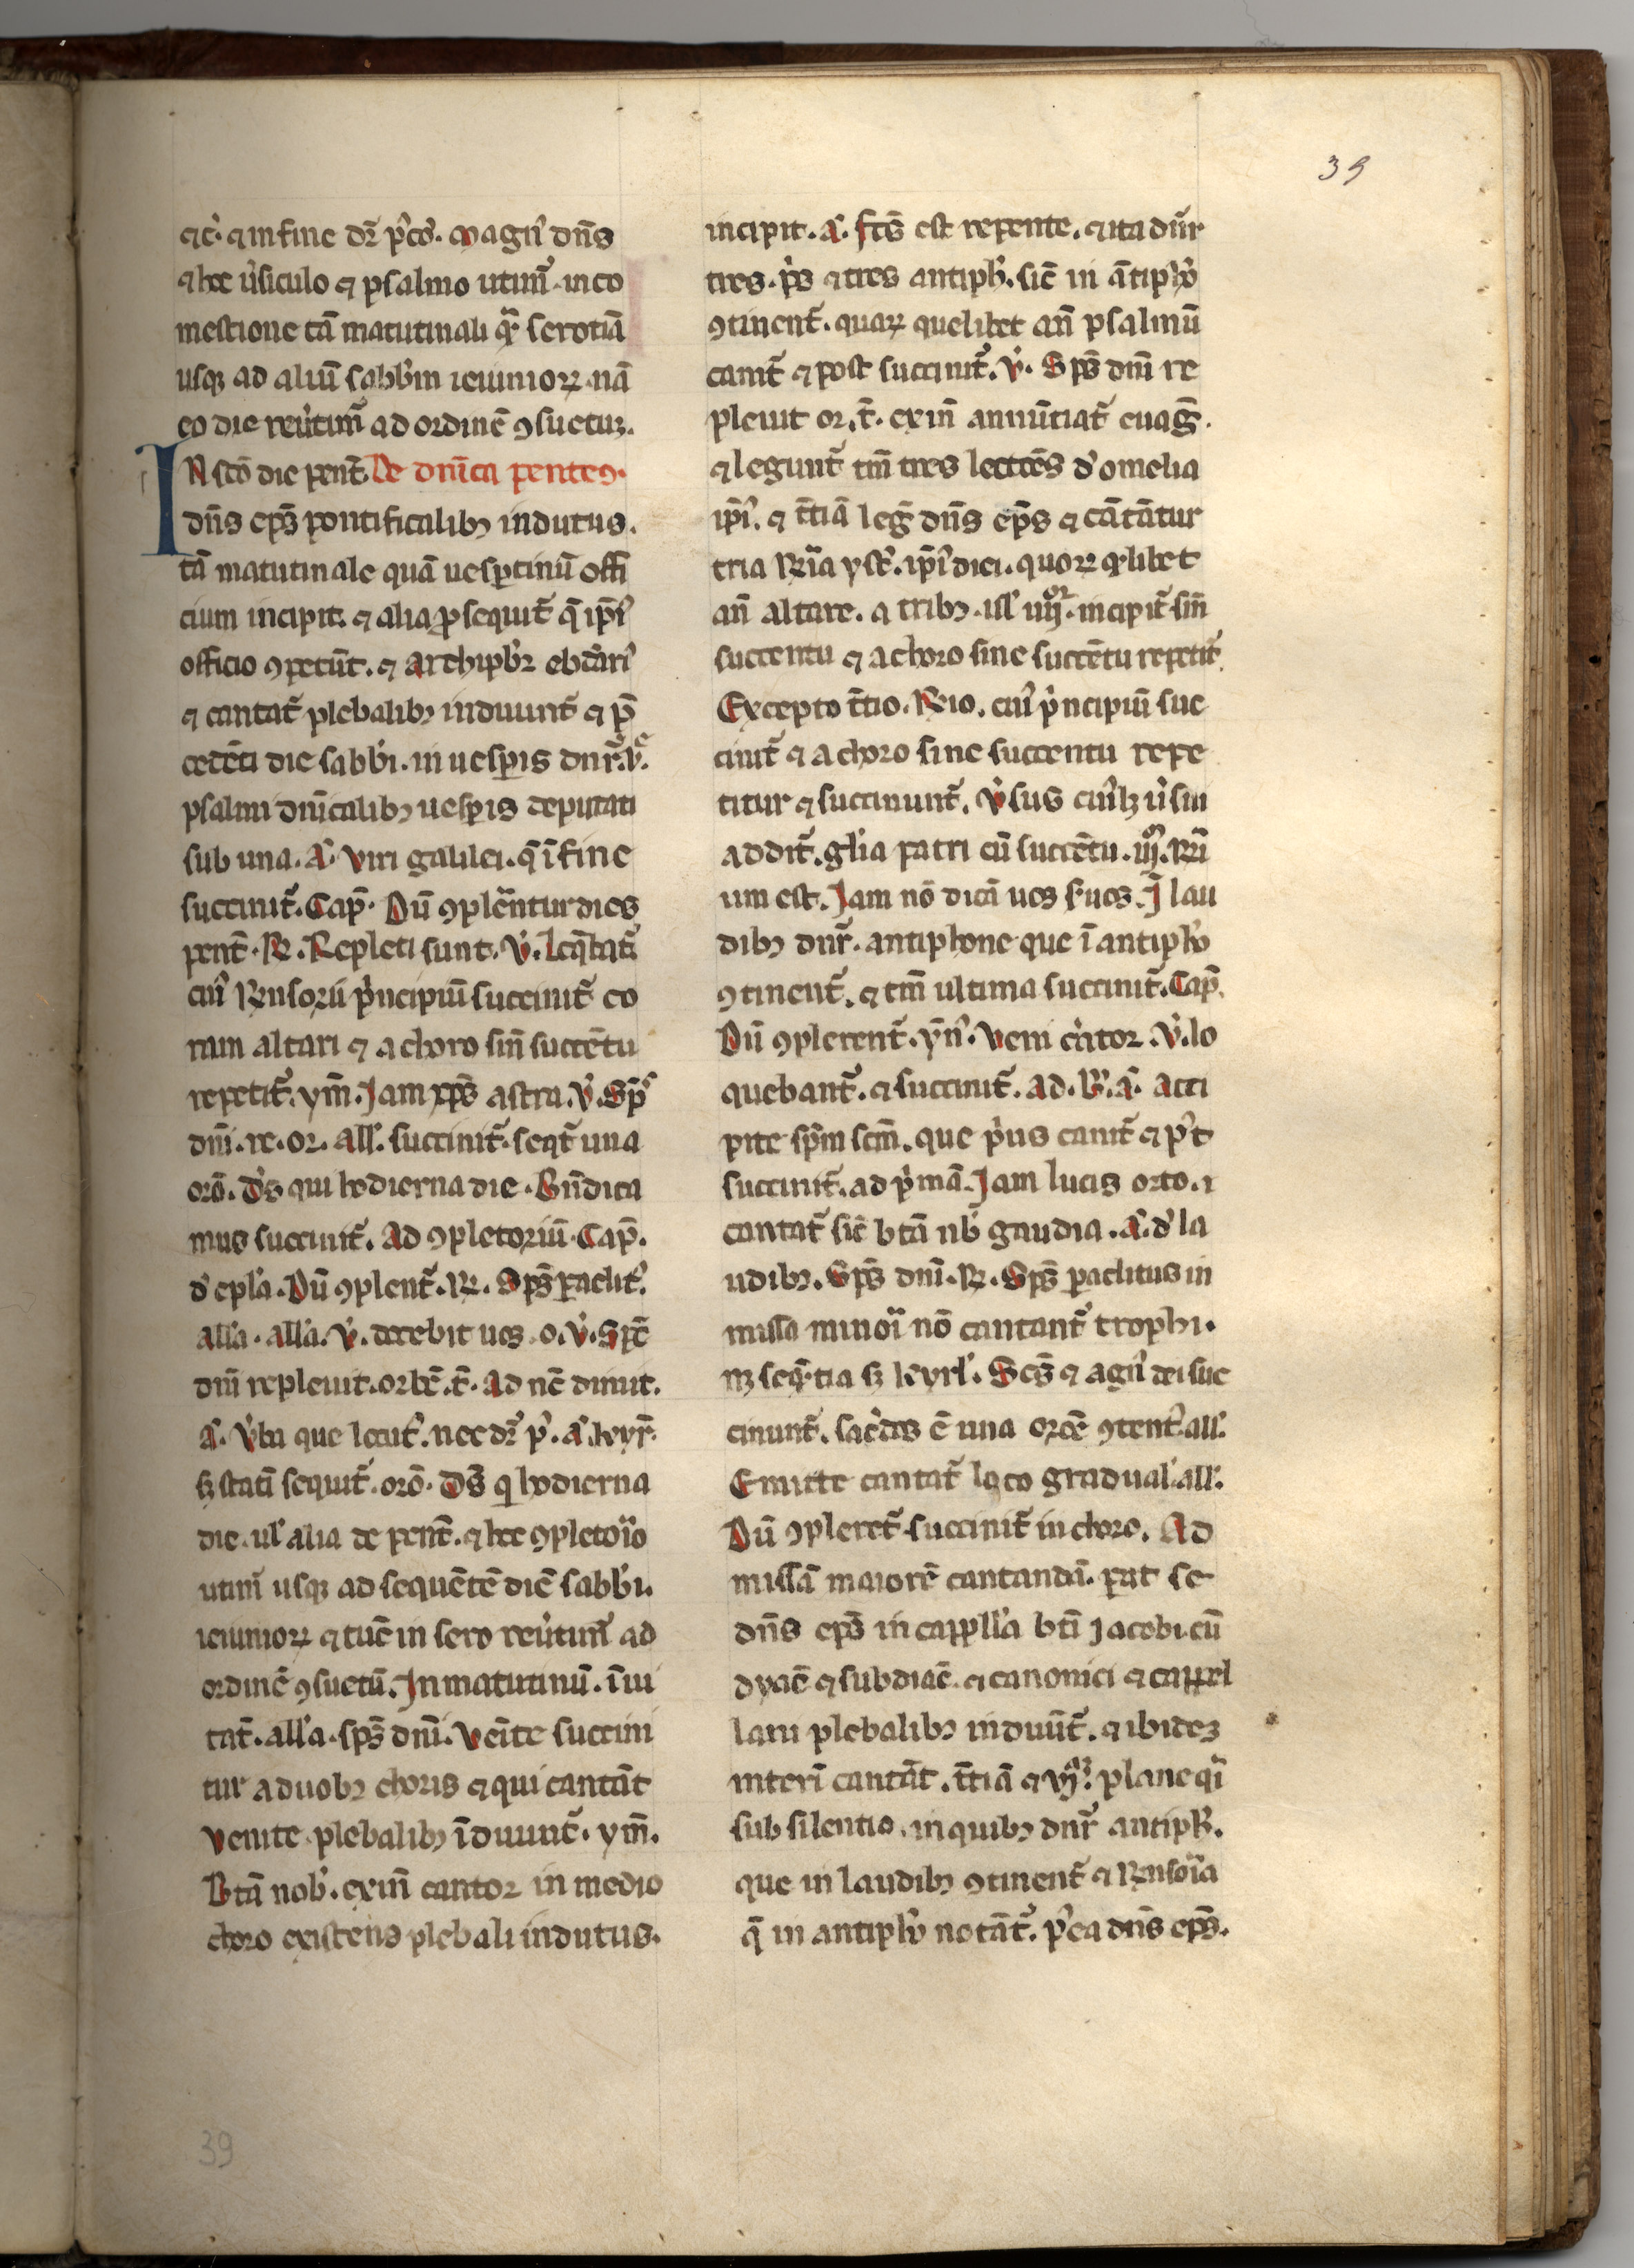 39
⁊c̉. ⁊ in fine dr̄ p̉ces. Magn̉ dn̄s
⁊ hec ũsiculo ⁊ psalmo utim̃. in co
mestione tā matutinali q̃ serotiā
usqꝫ ad aliū sabb̉m ieiunioꝝ. nā
eo die reũtim̃ ad ordinē ꝯsuetuꝫ.
IN sc̄o die pent̄. De dn̄ica pentec̉.
dn̄s ep̄s pontificalibꝫ indutus.
tā matutinale quā uesꝑtinū offi
cium incipit. ⁊ alia ꝓsequit̃ q̄ ip̄ỉ
officio ꝯpetūt. ⁊ archipb̉r ebdārỉ
⁊ cantat̃ plebalibꝫ induunt̃ ⁊ p̄
cedēti die sabb̉i. in uesꝑis dn̄r̃. v̉.
psalmi dn̄icalibꝫ uesꝑis deputati
sub una. A̴. Viri galilei. q̄ ī fine
succinit̃. Cap̄. Dū ꝯplērentur dies
pent̄. ℞. Repleti sunt. ℣. Loq̄bāt̃
cuỉ Rn̄sorii p̉ncipiū succinit̃ co
ram altari ⁊ a choro sin̄ succētu
repetit̃. ym̄. Jam xp̄s astra. ℣. Sp̄c
dn̄i. re. or. all̉. succinit̃. seqt̃ una
orō. Ds̄ qui hodierna die. Bn̄dica
mus succinit̃. Ad ꝯpletoriū. Cap̄.
d̉ epl̉a. Dū ꝯplent̃. ℞. Sp̄s ꝑaclit̉.
all̉a. all̉a. ℣. docebit uos. o. ℣. Sp̄c
dn̄i repleuit. orbē. t̄. Ad nc̄ dimit.
A̴. V̉ba que locut̉. nec dr̄ p̉. A̴. kyr̄.
sꝫ statī sequit̃. orō. Ds̄ q̉ hodierna
die. ul̉ alia de pent̄. ⁊ hec ꝯpletorio
utim̃ usqꝫ ad sequētē diē sabb̉i.
ieiunioꝝ ⁊ tūc in sero reũtim̃ ad
ordinē ꝯsuetū. In matutinū. īui
tat̄. all̉a. sp̄s dn̄i. Venite succini
tur a duobꝫ choris ⁊ qui cantāt
Venite. plebalibꝫ īduunt̃. ym̄.
Btā nob̉. exin̄ cantor in medio
choro existens plebali indutus.
incipit. A̴. fcs̄ est repente. ⁊ ita dn̄r
tres. ps̄ ⁊ tres antiph̉. sic̄ in ātipho̓
ꝯtinent̃. quaꝝ quelibet an̄ psalmū
canit̃ ⁊ post succinit̃. ℣. Sp̄s dn̄i re
pleuit or. t̄. exin̄ annūtiat̃ euag̃.
⁊ legunt̃ tm̄ tres lectōes d̉ omelia
ip̄ỉ. ⁊ t̄tiā leg̃ dn̄s ep̄s ⁊ cātātur
tria Rr̄ia yst̉. ip̄ỉ diei. quoꝝ q̉libet
an̄ altare. a tribꝫ. ul̉ iiij̉. incipit̃ sin̄
succentu ⁊ a choro sine succētu repetit̃.
Excepto t̄tio. Rr̄io. cuỉ p̉ncipiū suc
cinit̃ ⁊ a choro sine succentu repe
titur ⁊ succinunt̃. V̉sus cuỉlꝫ ũsui
addit̃. gl̉ia patri cū succētu. iij̉. Rr̄i
um est. Jam nō dicā uos s̉uos. J̄ lau
dibꝫ dn̄r̃. antiphone que ī antipho̓
ꝯtinent̃. ⁊ tm̄ ultima succinit̃. Cap̄.
Dū ꝯplerent̃. yn̄. Veni c̉ator. ℣. lo
quebant̃. ⁊ succinit̃. ad. B̉. A̴. Acci
pite sp̄m scm̄. que p̉us canit̃ ⁊ p̉t
succinit̃. ad p̉mā. Jam lucis orto. i
cantat̃ sic̄ btā nb̉ gaudia. A̴. d̉ la
udibꝫ. Sp̄s dn̄i. ℞. Sp̄s paclitus in
missa minori nō cantant̃ trophi.
nꝫ seq̄tia sꝫ kyrl̉. Scs̄ ⁊ agn̉ dei suc
cinunt̃. sac̉dos ē una orōe ꝯtent̉. all̉.
Emitte cantat̃ loco gradual̉. all̉.
Dū ꝯpleret̃. succinit̃ in choro. Ad
missā maiorē cantandā. parat se
dn̄s ep̄s in cappll̉a bt̄i Jacobi. cū
dyac̄ ⁊ subdiac̄. ⁊ canonici ⁊ cappel
lani plebalibꝫ induūt̃. ⁊ ibidez
interī cantāt. t̄tiā ⁊ vj̉. plane q̉i
sub silentio. in quibꝫ dn̄r̃ antiph̉.
que in laudibꝫ ꝯtinent̃ ⁊ Rn̄soria
q̄ in antipho̓ notāt̃. p̉ea dn̄s ep̄s.
39